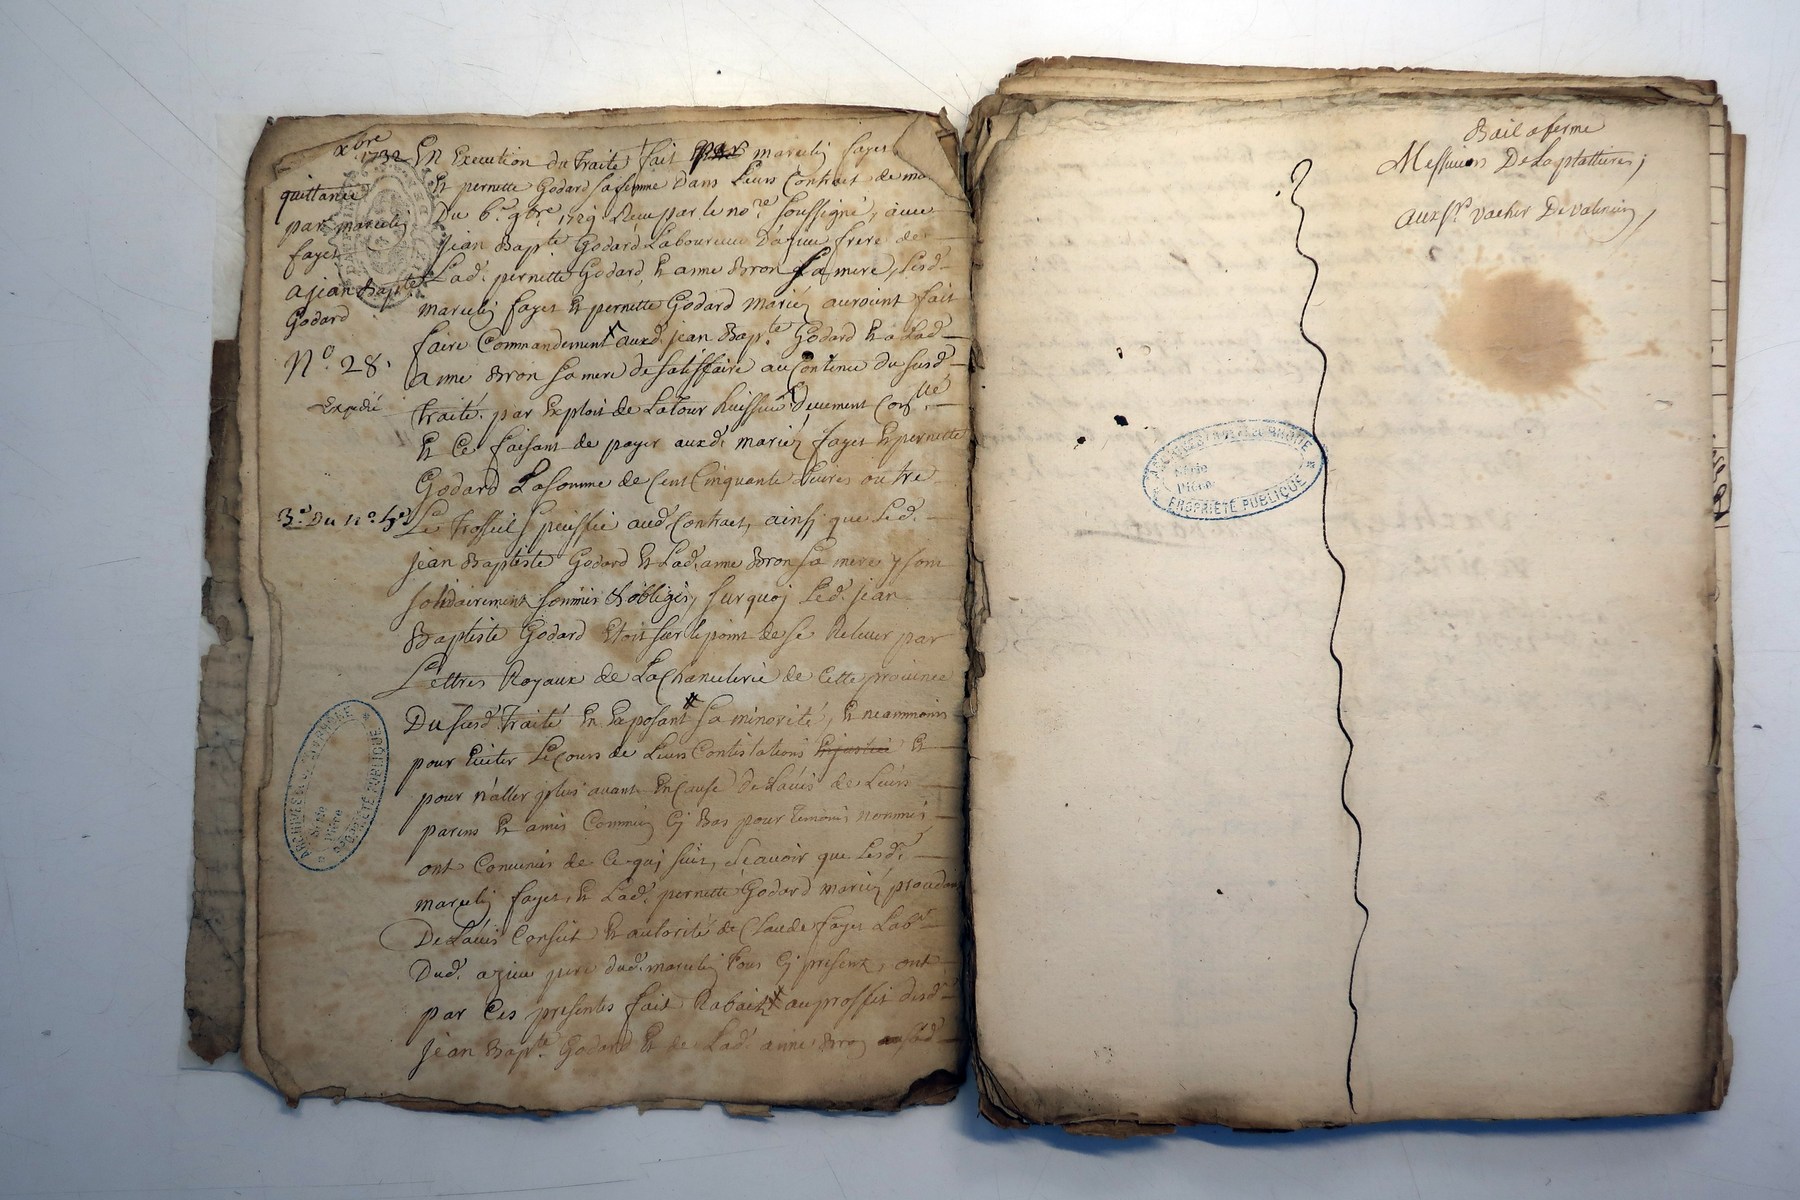 xbre
1732
quittance
par marcelin
fayet
a jean Bapte
Godard
No. 28.
Expedié
3e. Du no.
En Execution du traité fait par marcelin fayet
Et pernette Godard sa femme dans Leurs Contract de ma
Du 6e. 9bre. 1729 Receu par le nore. soussigné, avec
jean Bapte Godard Laboureur D'azieu frere de
Lad. pernette Godard, Et anne Bron sa mere, Lesd.
marcelin fayet Et pernette Godard mariez auroient fait
faire Commandement auxd. jean Bapte. Godard Et a Lad.
anne Bron sa mere de satisffaire au Contenu du susd.
traité. par Exploit de Latour huissier Deuement
Et Ce faisant de payer auxd. mariez fayet Et pernette
Godard La somme de Cent Cinquante Livres outre
Le Trossel speciffié aud. Contract, ainsy que Led.
jean Baptiste Godard Et Lad. anne Bron sa mere y sont
solidairement soumis & obligés, surquoy Led. jean
Baptiste Godard Etoit sur le point de se Relever par
Lettres Royaux de La Chancelerie de Cette province
Du susd. Traité En Exposant sa minorité, Et neanmoins
pour Eviter Le Cours de Leurs Contestations En justice Et
pour n'aller plus avant En Cause De L'avis de Leurs
parens Et amis Communs Cy Bas pour temoins nommés
ont Convenus de Ce qui suit, Scavoir que Lesd.
marcelin fayet, Et Lad. pernette Godard mariez procedans
De L'avis Conseil Et autorité de Claude fayet Labr.
Dud. azieu pere dud. marcelin tous Cy present, ont
par Ces presentes fait Rabait au proffit desd.
jean Bapte. Godard Et de Lad. anne Bron sad.
ARCHIVES
Série
Pièce
PROPRIÉTÉ PUBLIQUE
Bail a ferme
Messieurs De Laplattiere;
aux Srs. vacher De valencin,
ARCHIVES DU RHONE
Série
Pièce
PROPRIÉTÉ PUBLIQUE